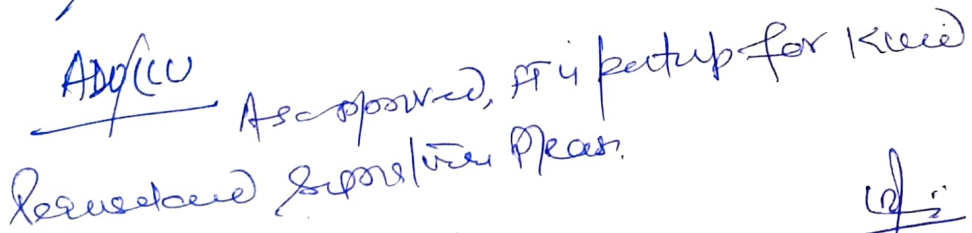 ADO/CCU
As approved, FT is putup for Kind
Perusal and Signature Please.